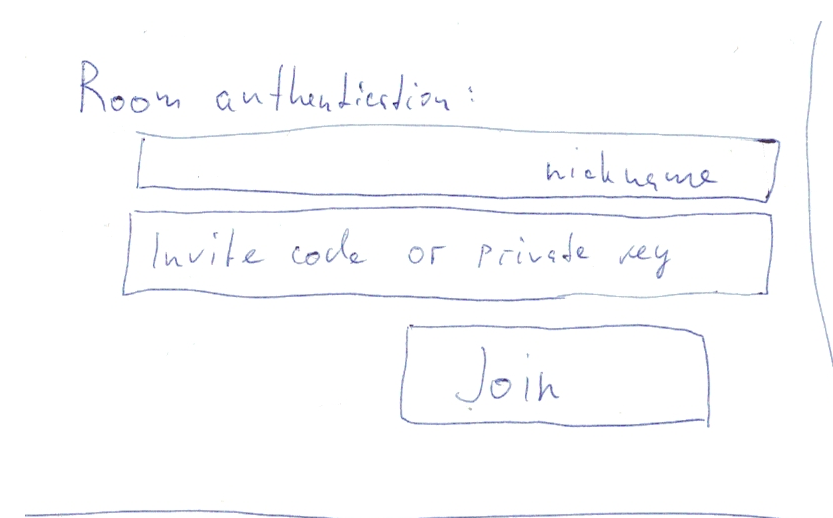 Room authentication:
nickname
Invite code or private key
Join